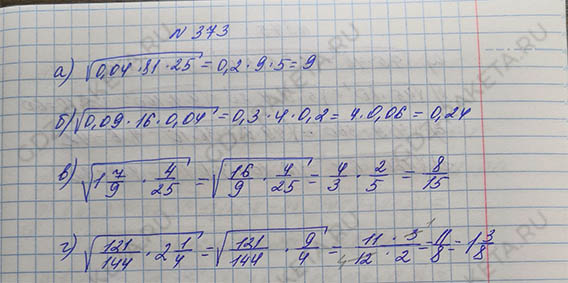 N 373
а) √(0,04 · 81 · 25) = 0,2 · 9 · 5 = 9
б) √(0,09 · 16 · 0,04) = 0,3 · 4 · 0,2 = 4 · 0,06 = 0,24
в) √(1 7/9 · 4/25) = √(16/9 · 4/25) = 4/3 · 2/5 = 8/15
г) √(121/144 · 2 1/4) = √(121/144 · 9/4) = (11 · 3 1)/(4 12 · 2) = 11/8 = 1 3/8